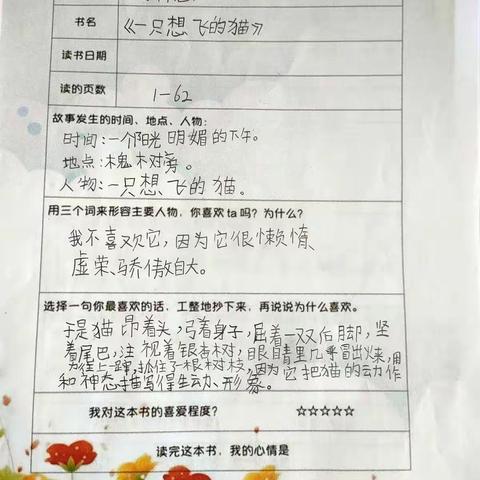 书名
《一只想飞的猫》
读书日期
读的页数
1-62
故事发生的时间、地点、人物:
时间:一个阳光明媚的下午。
地点:槐树旁。
人物:一只想飞的猫。
用三个词来形容主要人物,你喜欢 ta 吗?为什么?
我不喜欢它,因为它很懒惰、
虚荣、骄傲自大。
选择一句你最喜欢的话,工整地抄下来,再说说为什么喜欢。
于是猫昂着头,弓着身子,屈着一双后脚,坚
着尾巴,注视着银杏树,眼睛里几乎冒出火来,用
力往上一蹿,抓住了一根树枝,因为它把猫的动作
和神态描写得生动、形象。
我对这本书的喜爱程度?
☆☆☆☆☆
读完这本书,我的心情是